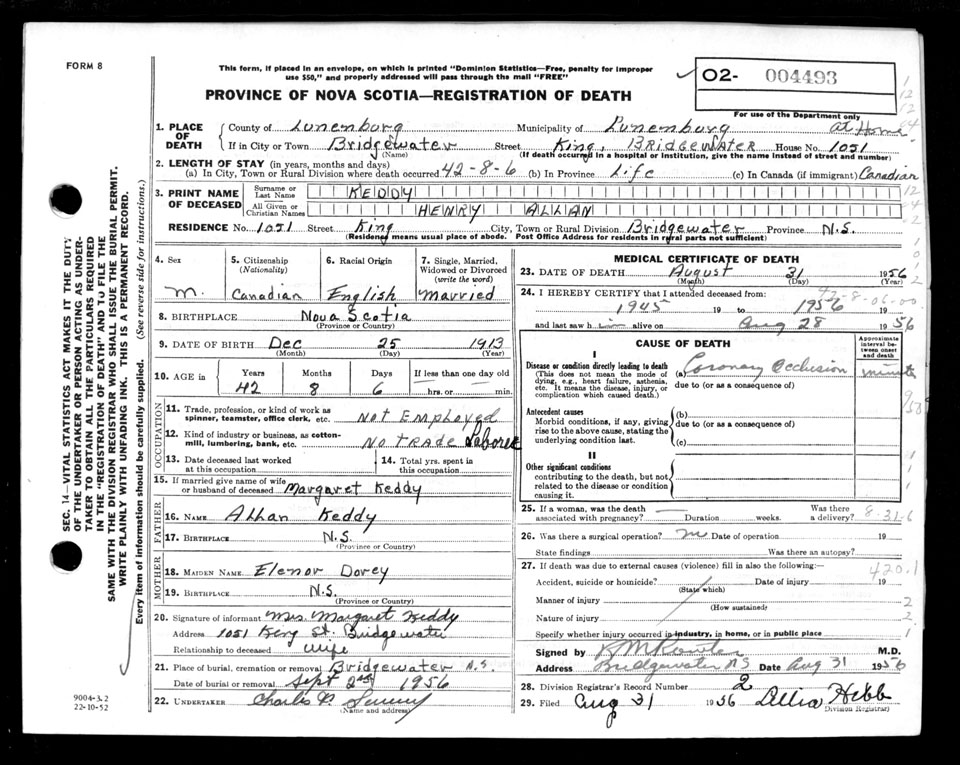 FORM 8
This form, if placed in an envelope, on which is printed "Dominion Statistics—Free, penalty for improper
use $50," and properly addressed will pass through the mail "FREE"
PROVINCE OF NOVA SCOTIA—REGISTRATION OF DEATH
O2- 004493
For use of the Department only
1. PLACE OF DEATH
County of Lunenburg Municipality of Lunenburg at Home
If in City or Town Bridgewater Street King, BRIDGEWATER House No. 1051
(Name) (If death occurred in a hospital or institution, give the name instead of street and number)
2. LENGTH OF STAY (in years, months and days)
(a) In City, Town or Rural Division where death occurred 42-8-6 (b) In Province Life (c) In Canada (if immigrant) Canadian
3. PRINT NAME OF DECEASED
Surname or Last Name KEDDY
All Given or Christian Names HENRY ALLAN
RESIDENCE No. 1051 Street King City, Town or Rural Division Bridgewater Province N.S.
(Residence means usual place of abode. Post Office Address for residents in rural parts not sufficient)
4. Sex M.
5. Citizenship (Nationality) Canadian
6. Racial Origin English
7. Single, Married, Widowed or Divorced (write the word) Married
8. BIRTHPLACE Nova Scotia
(Province or Country)
9. DATE OF BIRTH Dec 25 1913
(Month) (Day) (Year)
10. AGE in Years 42 Months 8 Days 6 If less than one day old hrs. or min.
OCCUPATION
11. Trade, profession, or kind of work as spinner, teamster, office clerk, etc. Not Employed
12. Kind of industry or business, as cotton-mill, lumbering, bank, etc. No TRADE Laborer
13. Date deceased last worked at this occupation
14. Total yrs. spent in this occupation
15. If married give name of wife or husband of deceased Margaret Keddy
FATHER
16. NAME Allan Keddy
17. BIRTHPLACE N.S.
(Province or Country)
MOTHER
18. MAIDEN NAME Elenor Dorey
19. BIRTHPLACE N.S.
(Province or Country)
20. Signature of informant Mrs. Margaret Keddy
Address 1051 King St. Bridgewater
Relationship to deceased wife
21. Place of burial, cremation or removal Bridgewater N.S.
Date of burial or removal Sept 2nd 1956
22. UNDERTAKER Charles
(Name and address)
MEDICAL CERTIFICATE OF DEATH
23. DATE OF DEATH August 31 1956
(Month) (Day)
24. I HEREBY CERTIFY that I attended deceased from:
42-8-06-00
1945 19 to 1956 19
and last saw him alive on Aug 28 1956
CAUSE OF DEATH
Approximate interval between onset and death
I
Disease or condition directly leading to death (a) Coronary Occlusion minutes
(This does not mean the mode of dying, e.g., heart failure, asthenia, etc. It means the disease, injury, or complication which caused death.)
due to (or as a consequence of)
Antecedent causes
Morbid conditions, if any, giving rise to the above cause, stating the underlying condition last.
(b)
due to (or as a consequence of)
(c)
II
Other significant conditions
contributing to the death, but not related to the disease or condition causing it.
25. If a woman, was the death associated with pregnancy? Duration weeks. Was there a delivery? 8-31-6
26. Was there a surgical operation? Date of operation 19
State findings Was there an autopsy?
27. If death was due to external causes (violence) fill in also the following: 420.1
Accident, suicide or homicide? Date of injury 19
(State which)
Manner of injury
(How sustained)
Nature of injury
Specify whether injury occurred in industry, in home, or in public place
Signed by M.D.
Address Bridgewater NS Date Aug 31 1956
28. Division Registrar's Record Number 2
29. Filed Aug 31 1956 Hebb
Division Registrar)
SEC. 14—VITAL STATISTICS ACT MAKES IT THE DUTY
OF THE UNDERTAKER OR PERSON ACTING AS UNDER-
TAKER TO OBTAIN ALL THE PARTICULARS REQUIRED
IN THE "REGISTRATION OF DEATH" AND TO FILE THE
SAME WITH THE DIVISION REGISTRAR WHO SHALL ISSUE THE BURIAL PERMIT.
WRITE PLAINLY WITH UNFADING INK. THIS IS A PERMANENT RECORD.
Every item of information should be carefully supplied. (See reverse side for instructions.)
9004-3.2
22-10-52